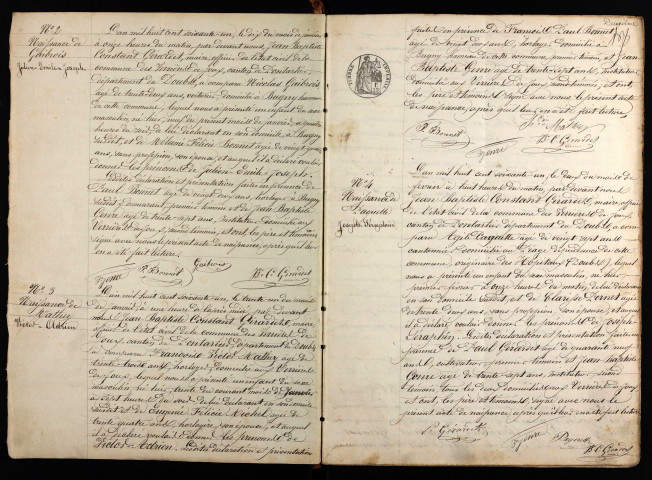 N° 2
Naissance de
Gaibrois
Julien Emile Joseph
L'an mil huit cent soixante un, le dix du mois de janvier
à onze heures du matin, par devant nous, Jean Baptiste
Constant Girardet, maire, officier de l'état civil de la
commune des Verrières de Joux, canton de Pontarlier
département du Doubs, a comparu Nicolas Gaibrois
âgé de trente deux ans, voiturier, domicilié à Bugny hameau
de cette commune, lequel nous a présenté un enfant du sexe
masculin, né hier, neuf du présent mois de janvier, à quatre
heures du soir, de lui déclarant en son domicile, à Bugny
susdit, et de Mélanie Félicie Bonnet âgée de vingt
ans, sans profession, son épouse, et auquel il a déclaré vouloir
donner les prénoms de Julien Emile Joseph.
Lesdites déclaration et présentation faites en présence de
Paul Bonnet âgé de vingt deux ans, horloger, à Bugny
susdit, demeurant, premier témoin et de Jean Baptiste
Genre âgé de trente sept ans, instituteur, domicilié aux
Verrières de Joux, second témoin, et ont, les père et témoins,
signé avec nous le présent acte de naissance, après qu'il leur
en a été fait lecture.
Genre P. Bonnet Gaibrois B. C. Girardet
N° 3
Naissance de
Mathey
Victor Adrien
L'an mil huit cent soixante un, le trente un du mois
de janvier à une heure de l'après midi, par devant
nous Jean Baptiste Constant Girardet, maire
officier de l'état civil de la commune des Verrières de
Joux, canton de Pontarlier, département du Doubs
a comparu François Victor Mathey âgé de
trente trois ans, horloger, domicilié aux Verrières
de Joux, lequel nous a présenté un enfant du sexe
masculin né hier, trente du courant mois de janvier
à sept heures du soir, de lui déclarant en son domicile
susdit et de Eugénie Félicie Michel âgée de
trente quatre ans, horlogère, son épouse, et auquel
il a déclaré vouloir donner les prénoms de
Victor Adrien. Lesdites déclaration et présentation
Deuxième
faites en présence de François Paul Bonnet,
âgé de vingt deux ans, horloger, domicilié à
Bugny hameau de cette commune, premier témoin, et Jean
Baptiste Genre âgé de trente sept ans, instituteur,
domicilié aux Verrières de Joux, second témoin, et ont,
les père et témoins signé avec nous le présent acte
de naissance, après qu'il leur en a été fait lecture.
P. Bonnet Mathey
Genre B. C. Girardet
N° 4
Naissance de
Paquette
Joseph Séraphin
L'an mil huit cent soixante un, le deux du mois de
février à huit heures du matin, par devant nous
Jean Baptiste Constant Girardet, maire, officier
de l'état civil de la commune des Verrières de Joux,
canton de Pontarlier, département du Doubs, a
comparu Paquette âgé de vingt sept ans
cantonnier, domicilié au de cette
commune, originaire des Hôpitaux (Doubs), lequel
nous a présenté un enfant du sexe masculin, né hier
premier février, à onze heures du matin, de lui déclarant
en son domicile susdit, et de Clarisse Cornet, âgée
de trente deux ans, sans profession, son épouse, et auquel
il a déclaré vouloir donner les prénoms de Joseph
Séraphin. Lesdites déclaration et présentation faites en
présence de Paul Girardet âgé de quarante neuf
ans, cultivateur, premier témoin, et Jean Baptiste
Genre âgé de trente sept ans, instituteur, second
témoin, tous les deux domiciliés aux Verrières de Joux,
et ont, les père et témoins, signé avec nous le
présent acte de naissance, après qu'il leur en a été fait lecture.
Girardet Genre B. C. Girardet